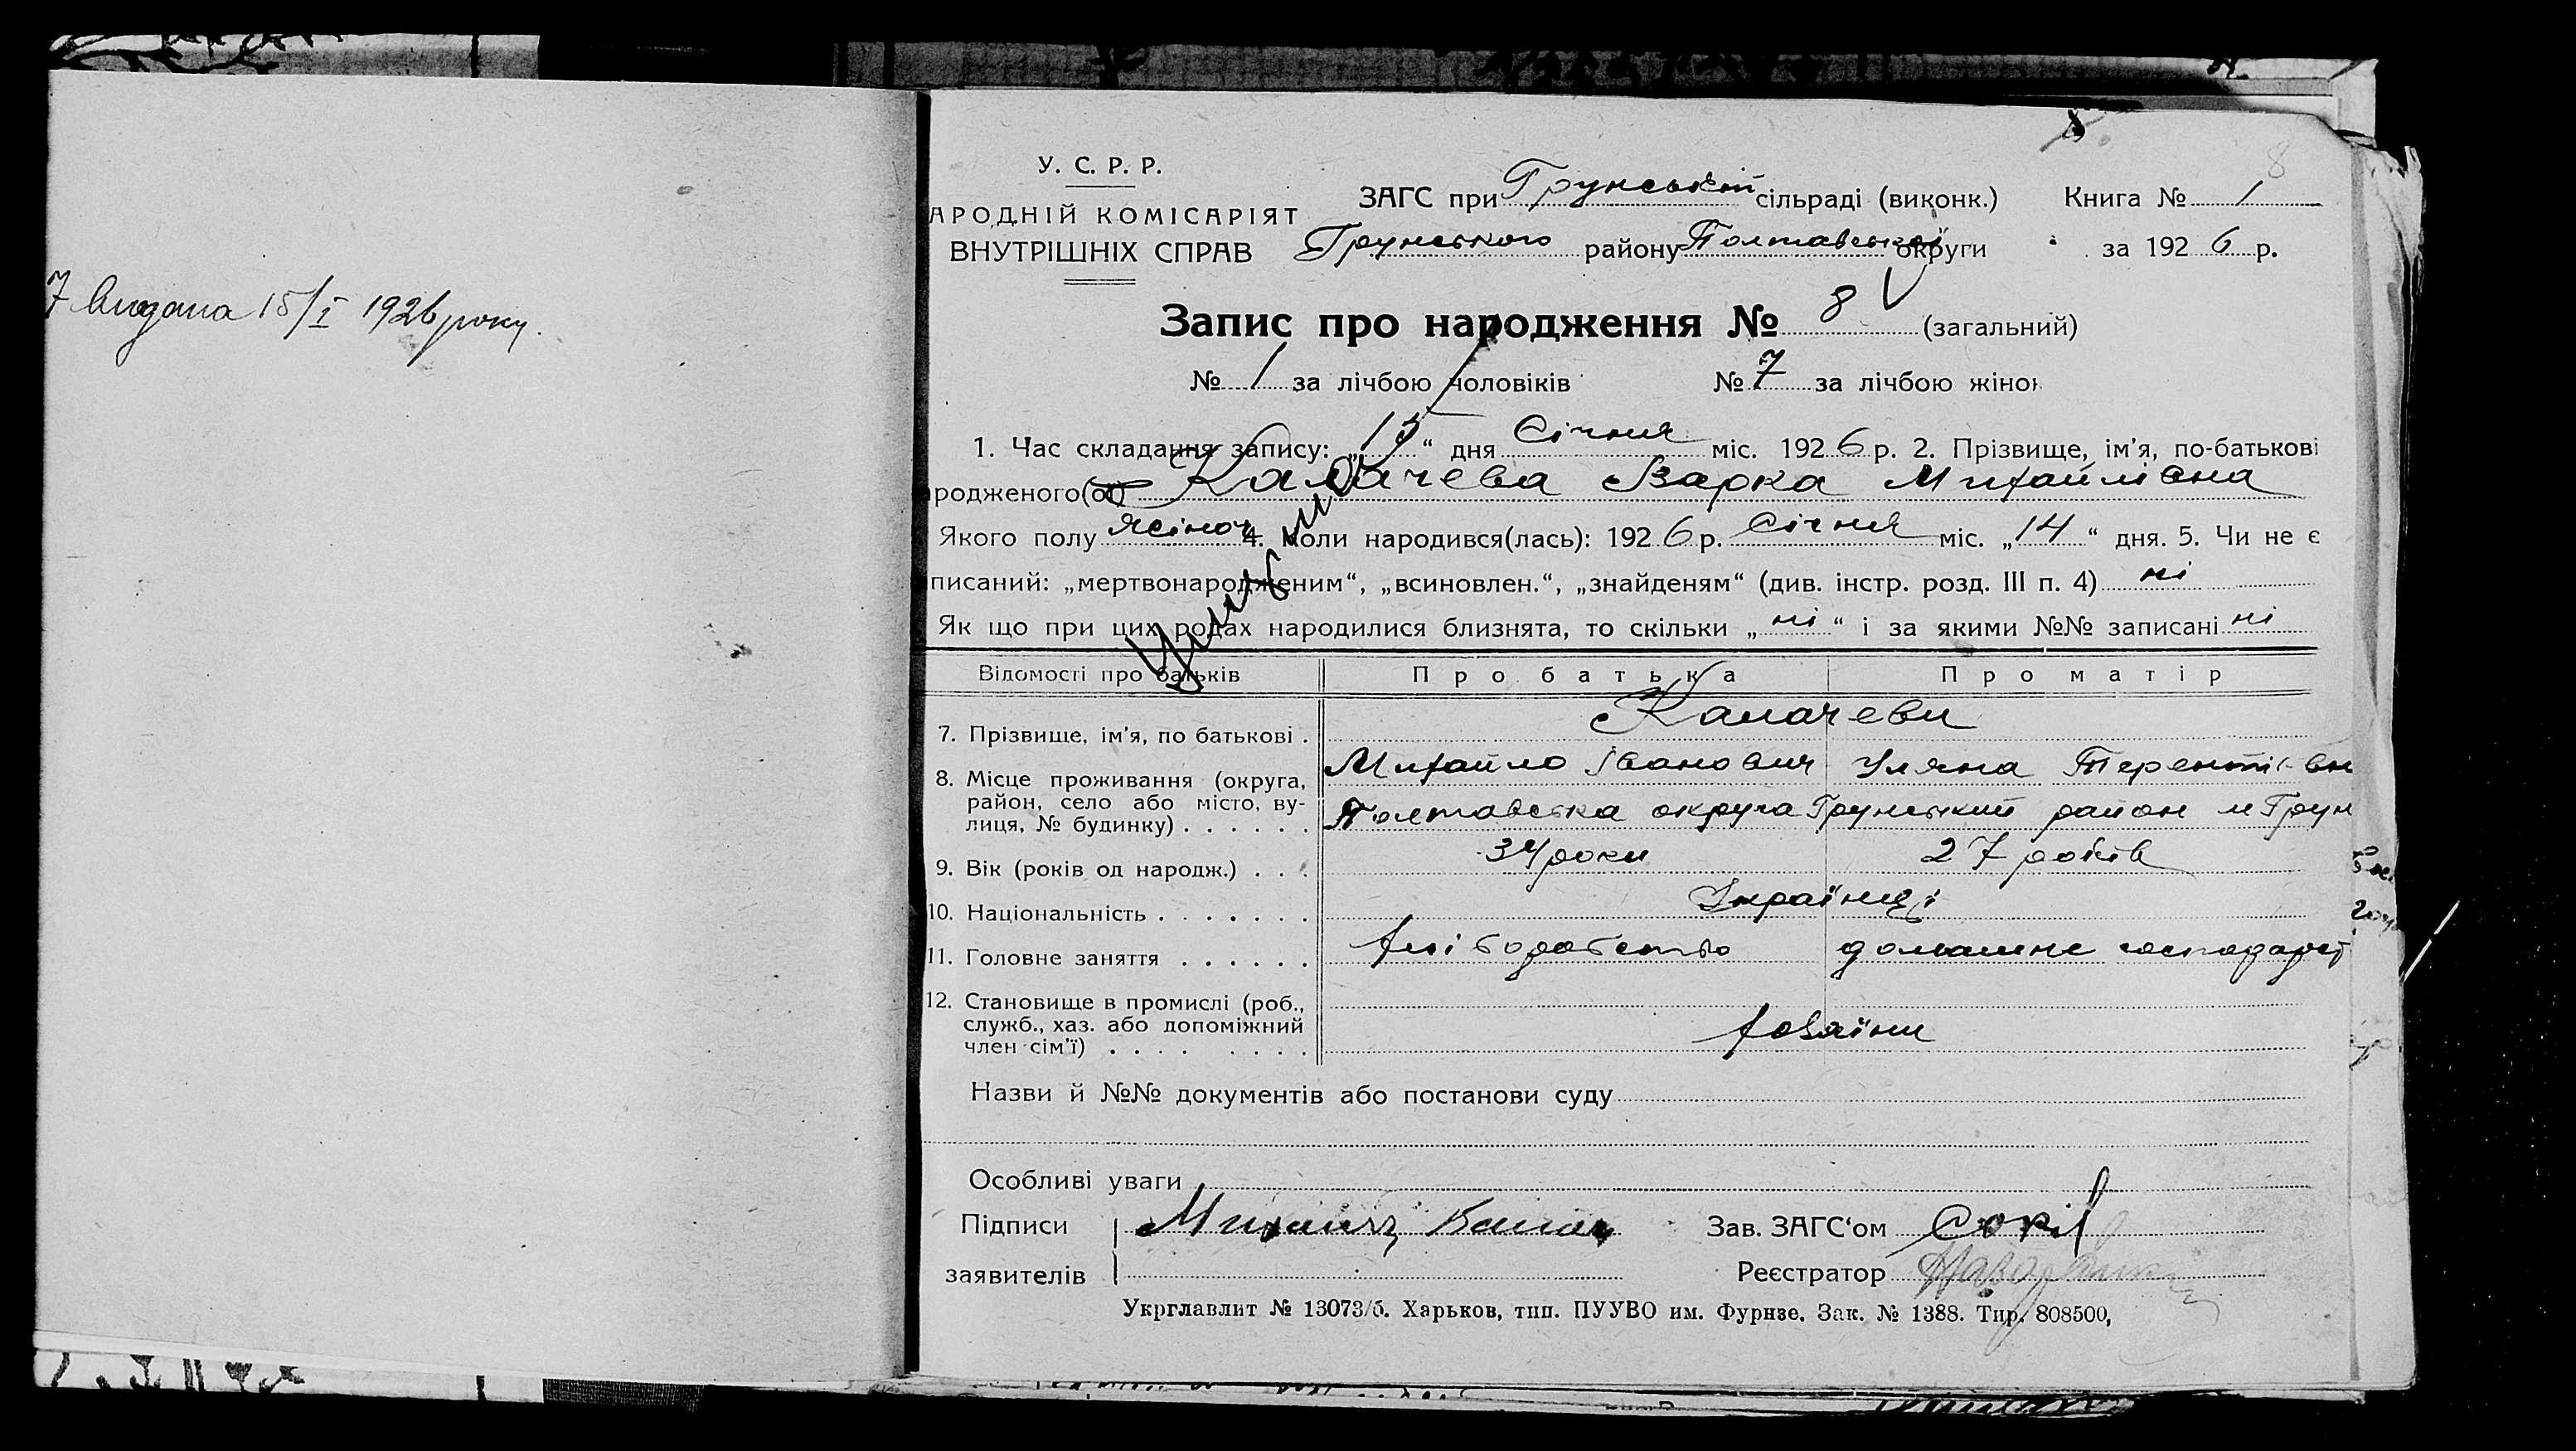 7 видана 15/I 1926 року.
8
У. С. Р. Р.
АРОДНІЙ КОМІСАРІЯТ
ВНУТРІШНІХ СПРАВ
ЗАГС при Грунській сільраді (виконк.) Книга № 1
Грунського району Полтавської округи за 1926 р.
Запис про народження № 8 (загальний)
№ 1 за лічбою чоловіків № 7 за лічбою жіно
1. Час складання запису: „15“ дня Січня міс. 1926 р. 2. Прізвище, ім’я, по-батькові
родженого(ої) Калачева Варка Михайлівна
Якого полу жіноч 4. Коли народився(лась): 1926 р. Січня міс. „14“ дня. 5. Чи не є
писаний: „мертвонародженим“, „всиновлен.“, „знайденям“ (див. інстр. розд. III п. 4) ні
Як що при цих родах народилися близнята, то скільки „ні“ і за якими №№ записані ні
Відомості про батьків Про батька Про матір
Калачеви
7. Прізвище, ім’я, по батькові .
Михайло Іванович Уляна Терентіївн
8. Місце проживання (округа, район, село або місто, вулиця, № будинку) . . . . . .
Полтавська округа Грунський район м Грун
9. Вік (років од народж.) . . . 34 роки 27 років
10. Національність . . . . . . . Українці
11. Головне заняття . . . . . . хліборобство домашнє господарст
12. Становище в промислі (роб., служб., хаз. або допоміжний член сім’ї) . . . . . . . .
хозяїни
Назви й №№ документів або постанови суду
Особливі уваги
Підписи заявителів
Зав. ЗАГС‘ом
Реєстратор
Укрглавлит № 13073/б. Харьков, тип. ПУУВО им. Фурнзе. Зак. № 1388. Тир. 808500,